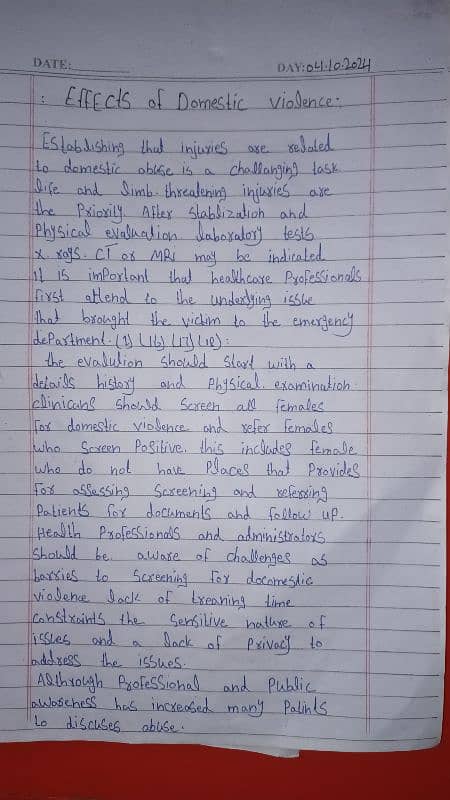 DATE:
DAY: 04.10.2024
: Effects of Domestic violence:
Establishing that injuries are related
to domestic abuse is a challanging task
life and limb. threatening injuries are
the Priority. After stablization and
Physical evaluation laboratory tests
x. rays. CT or MRI may be indicated
it is important that healthcare Professionals
first attend to the underlying issue
that brought the victim to the emergency
department. (1) (16) (17) (18):
the evalution should start with a
details history and Physical examination.
clinicans should Screen all females
for domestic violence and refer females
who Screen Positive. this includes female
who do not have Places that Provides
for assessing Screening and referring
Patients for documents and follow up.
Health Professionals and administrators
should be aware of challenges as
barries to Screening for docomestic
violence lack of treaning time
constraints the Sensitive nature of
issues and a lack of Privacy to
address the issues.
Although Professional and Public
awareness has increased many Patints
to discuses abuse.